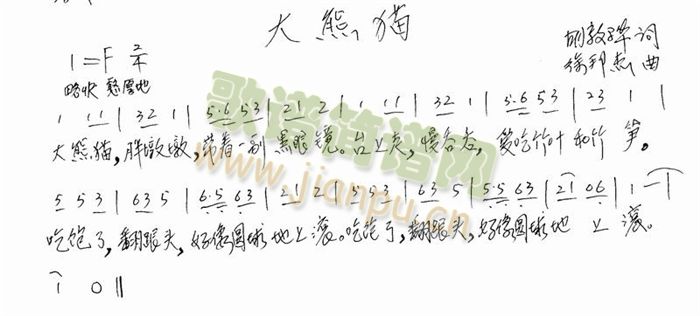 大熊猫
胡敦骅 词
1=F 2/4
徐邦杰 曲
略快 憨厚地
歌谱简谱网
www.jianpu.cn
1 11 | 32 1 | 5·6 53 | 21 2 | 1 11 | 32 1 | 5·6 53 | 23 1 |
大熊猫，胖墩墩，带着一副黑眼镜。台上走，慢台走，爱吃竹叶和竹笋。
5 53 | 63 5 | 6·5 63 | 21 2 | 5 53 | 63 5 | 5·5 63 | 21 06 | 1 — |
吃饱了，翻跟头，好像圆球地上滚。吃饱了，翻跟头，好像圆球地上滚。
1 0 ‖